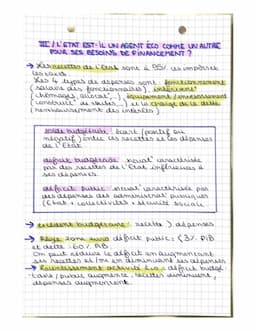 III / L'ETAT EST-IL UN AGENT ECO COMME UN AUTRE
POUR SES BESOINS DE FINANCEMENT ?
→ Les recettes de l'Etat sont à 95% les impôts et
les taxes.
Les 4 types de dépenses sont : fonctionnement
(salaire des fonctionnaires), intervention
(chômages, allocat°...), équipement / investissement
(construct° de stades,...) et la charge de la dette
(remboursement des intérêts)
solde budgétaire : écart (positif ou
négatif) entre les recettes et les dépenses
de l'Etat.
déficit budgétaire : situat° caractérisée
par des recettes de l'Etat inférieures à
ses dépenses.
déficit public : situat° caractérisée par
des dépenses des administrat° publiques
(Etat + collectivités + sécurité sociale
→ excédent budgétaire : recette > dépenses
→ Règle zone euro déficit public : < 3% PIB
et dette < 60% PIB.
On peut réduire le déficit en augmentant
ses recettes et / ou en diminuant ses dépenses
→ Ralentissement activité éco déficit budgé-
taire / public augmente, recettes diminuent,
dépenses augmentent.